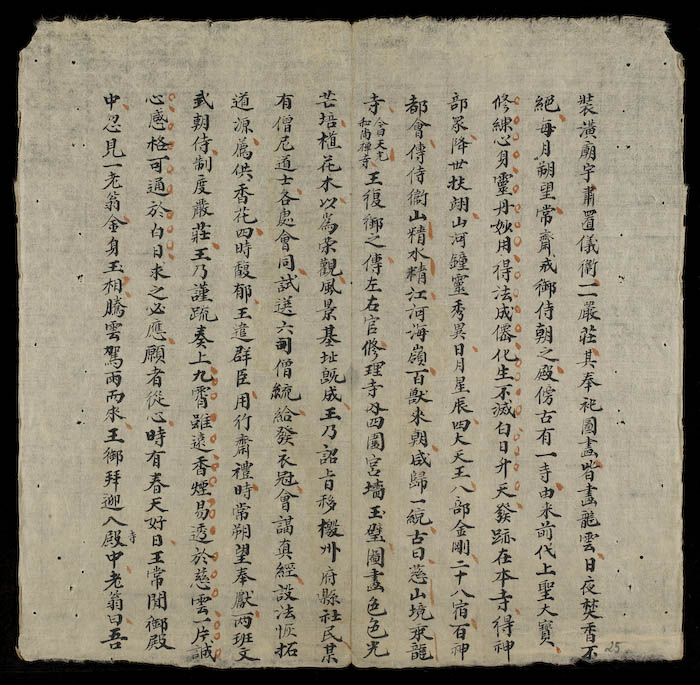 裝潢廟宇肅置儀衛二嚴莊其奉祀圖畫皆畫龍雲日夜焚香不
絕每月朔望常齋戒御侍朝之殿傍古有一寺由來前代上聖大寶
修練心身靈丹妙用得法成僊化生不滅白日升天發跡在本寺得神
部眾降世扶翊山河鐘靈秀異日月星辰四大天王八部金剛二十八宿百神
都會傳侍衛山精水精江河海嶺百獸來朝咸歸一統古曰慈山境承龍
寺今曰天宅和尚禪寺王復御之傳左右官修理寺外四圍宮墻玉璧圖畫色色光
芒培植花木以為榮觀風景基址既成王乃詔旨移檄卅府縣社民某
有僧尼道士各處會同試送六司僧統給發衣冠會講真經設法恢拓
道源薦供香花四時馥郁王遣群臣用行齋禮時常朔望奉獻兩班文
武朝侍制度嚴莊王乃謹疏奏上九霄雖遠香煙易透於慈雲一片誠
心感格可通於白日求之必應願者從心時有春天好日王常閒御殿
中忽見一老翁金身玉相騰雲駕雨而來王御拜迎入殿寺中老翁曰吾
25